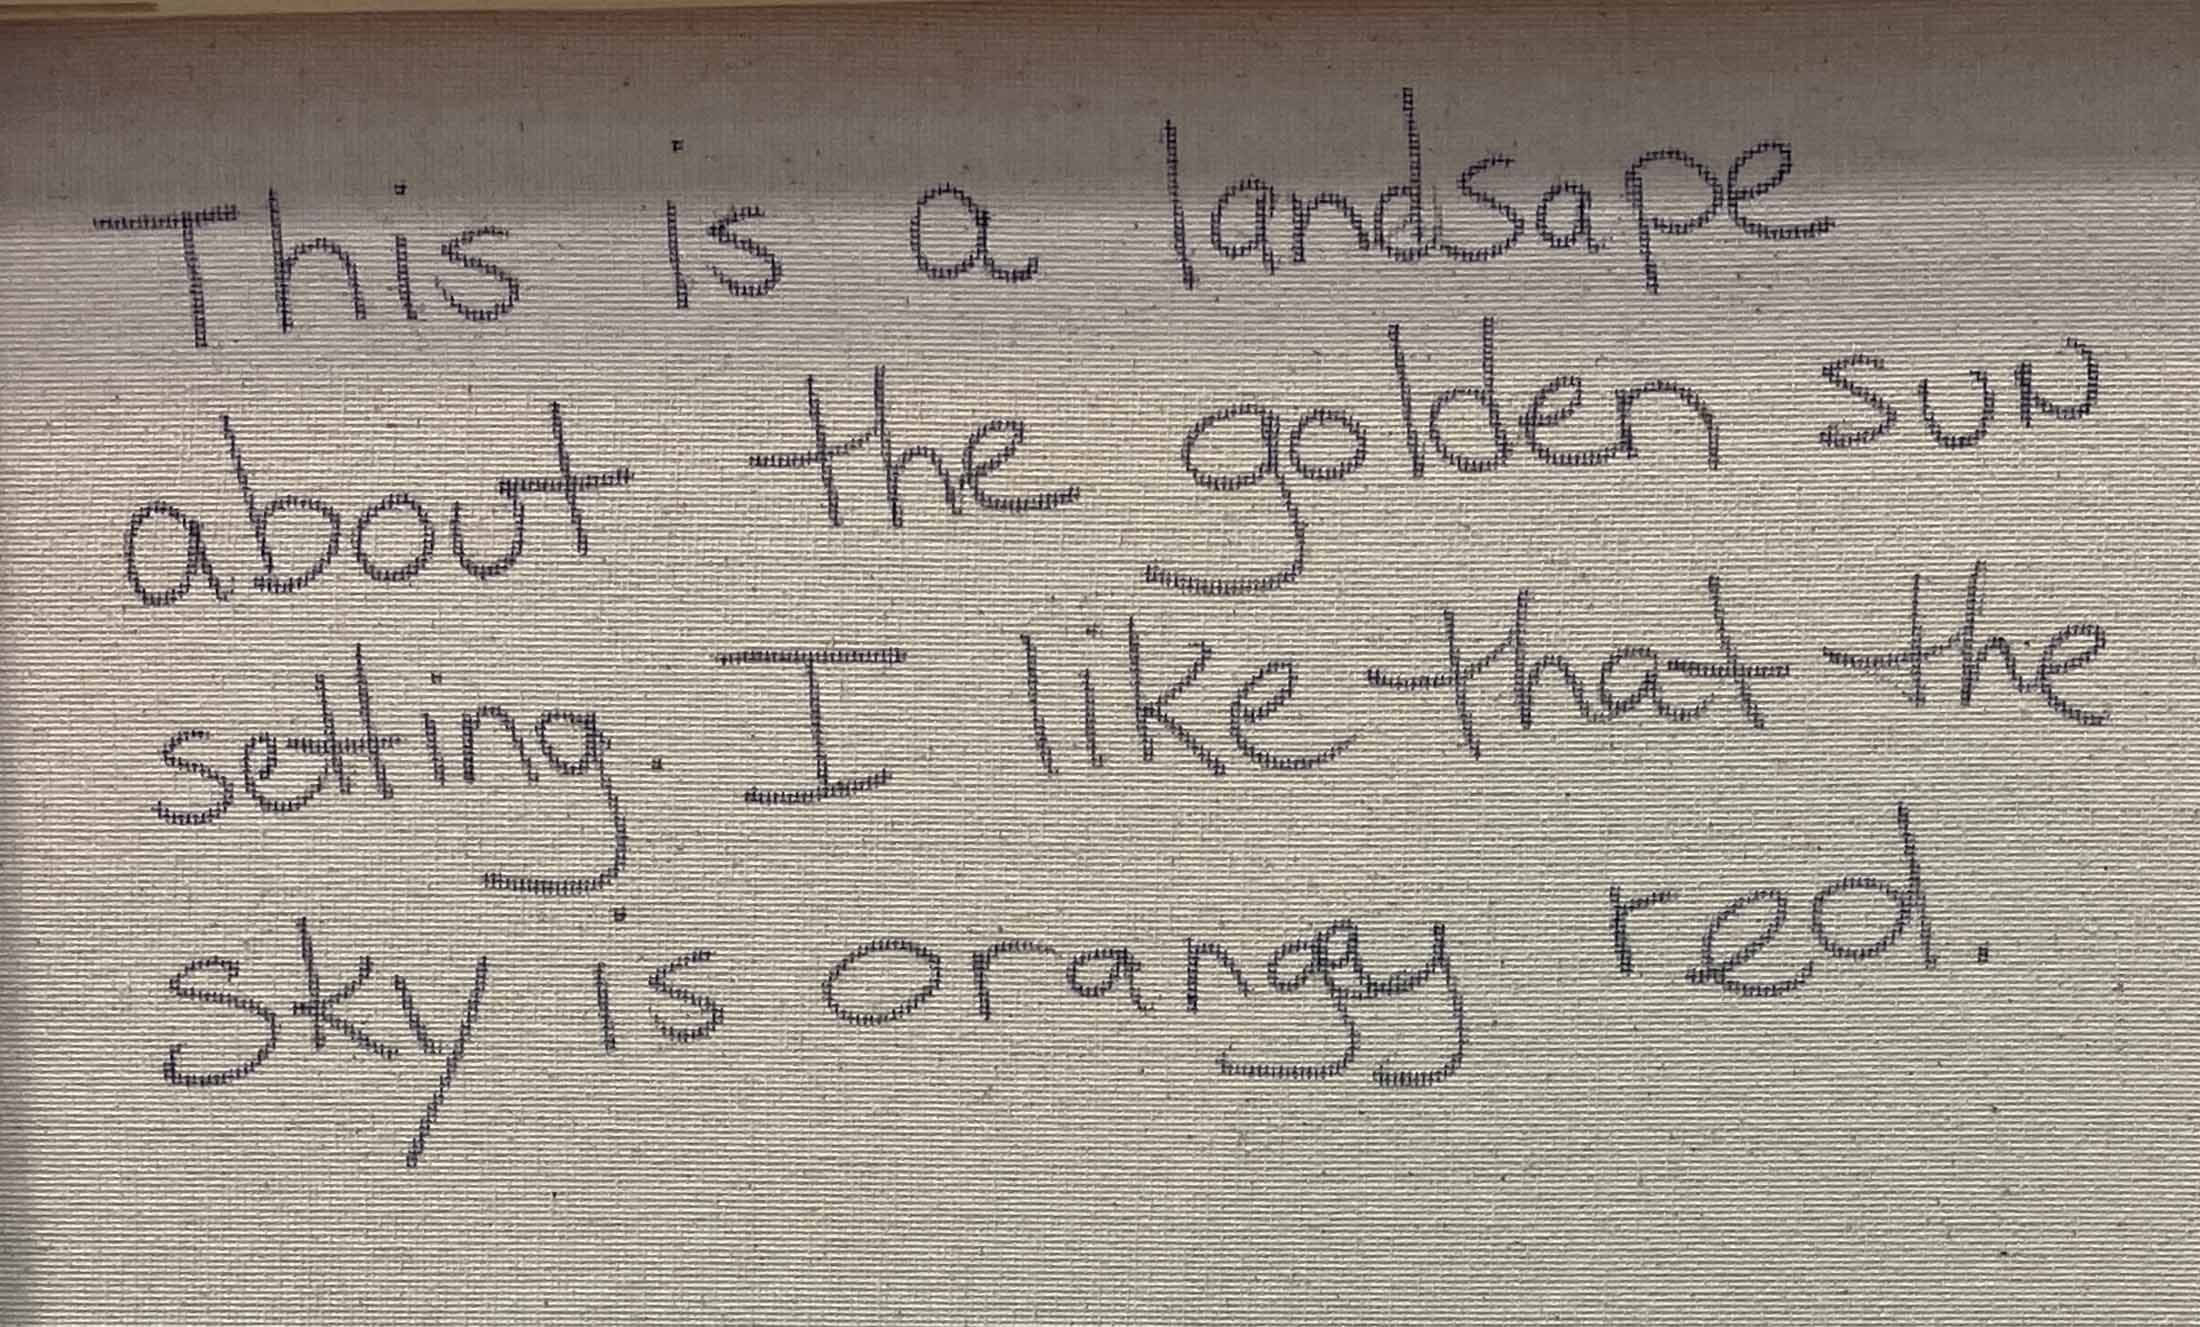 This is a landsape
about the golden sun
setting. I like that the
sky is orangy red.